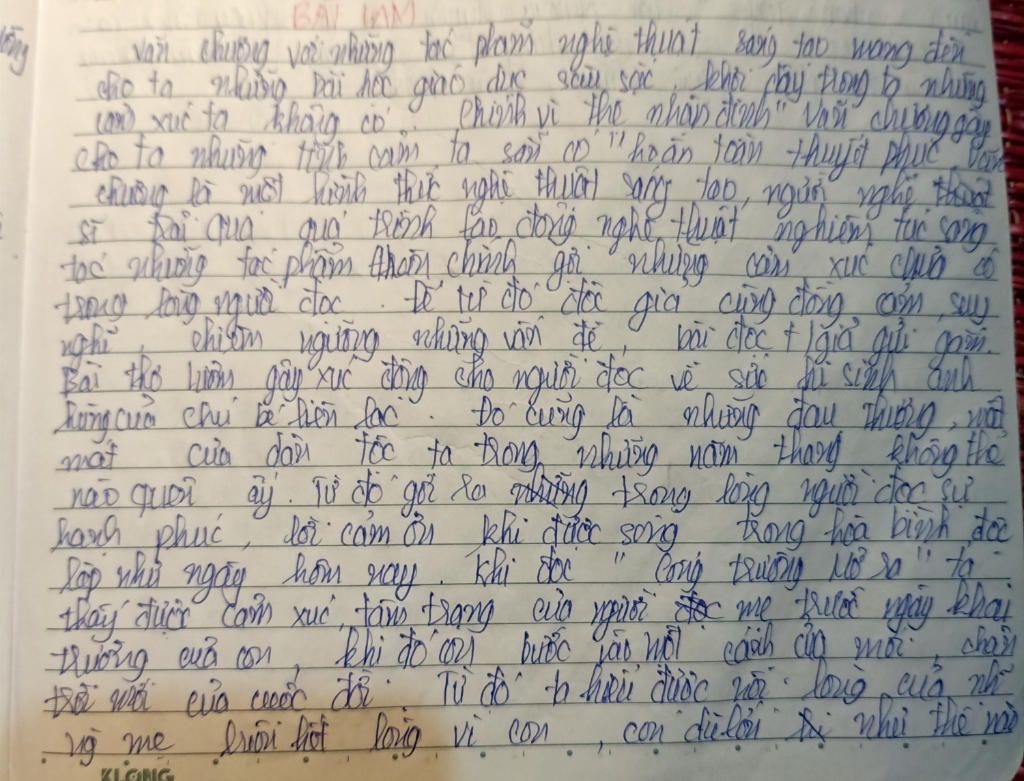 BÀI LÀM
Văn chương với những tác phẩm nghệ thuật sáng tạo mang đến
cho ta những bài học giáo dục sâu sắc, khơi dậy trong ta những
cảm xúc ta không có. Chính vì thế nhận định "Văn chương gây
cho ta những tình cảm ta sẵn có" hoàn toàn thuyết phục. Văn
chương là một hình thức nghệ thuật sáng tạo, người nghệ
sĩ trải qua quá trình lao động nghệ thuật nghiêm túc sáng
tác những tác phẩm hoàn chỉnh gợi những cảm xúc chưa có
trong lòng người đọc. Để từ đó độc giả cùng đồng cảm, suy
nghĩ, chiêm ngưỡng những vấn đề, bài đọc t/giả gửi gắm.
Bài thơ Lượm gây xúc động cho người đọc về sức hi sinh anh
hùng của chú bé liên lạc. Đó cũng là những đau thương, mất
mát của dân tộc ta trong những năm tháng không thể
nào quên ấy. Từ đó gợi ra trong lòng người đọc sự
hạnh phúc, lời cảm ơn khi được sống trong hòa bình, độc
lập như ngày hôm nay. Khi đọc "Cổng trường mở ra" ta
thấy được cảm xúc, tâm trạng của người mẹ trước ngày khai
trường của con, khi đó con bước vào một cánh cửa mới, chân
trời mới của cuộc đời. Từ đó ta hiểu được nỗi lòng của nh
ng mẹ luôn hết lòng vì con, con dù lớn như thế nào
KLONG